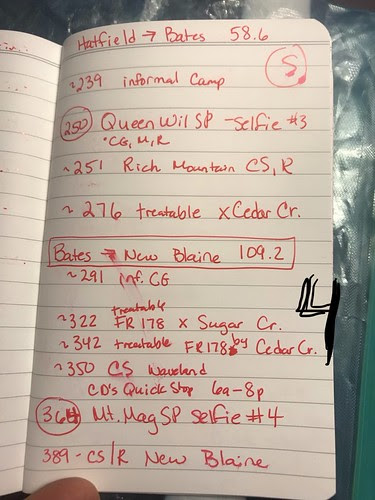 Hatfield → Bates 58.6
S
~239 informal Camp
250 Queen Wil SP - Selfie #3
• CG, M, R
~251 Rich Mountain CS, R
~276 treatable x Cedar Cr.
Bates → New Blaine 109.2
~291 inf. CG
treatable
~322 FR178 x Sugar Cr.
~342 treatable FR178 by Cedar Cr.
~350 CS Waveland
CD's Quick Stop 6a-8p
364 Mt. Mag SP Selfie #4
389 - CS/R New Blaine